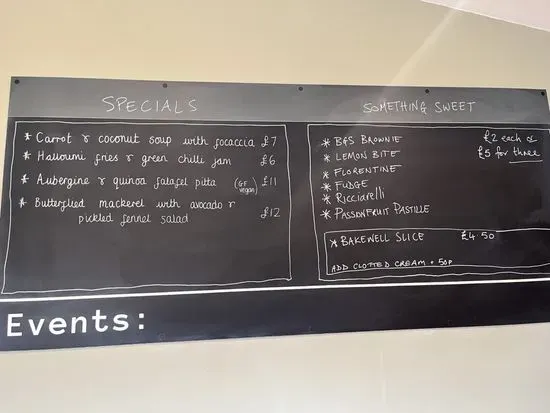 SPECIALS
* Carrot & coconut soup with focaccia £7
* Halloumi fries & green chilli jam £6
* Aubergine & quinoa falafel pitta (GF vegan) £11
* Butterflied mackerel with avocado &
pickled fennel salad £12
SOMETHING SWEET
* B&S BROWNIE £2 each or
* LEMON BITE £5 for three
* FLORENTINE
* FUDGE
* Ricciarelli
* PASSIONFRUIT PASTILLE
* BAKEWELL SLICE £4.50
ADD CLOTTED CREAM + 50P
Events: